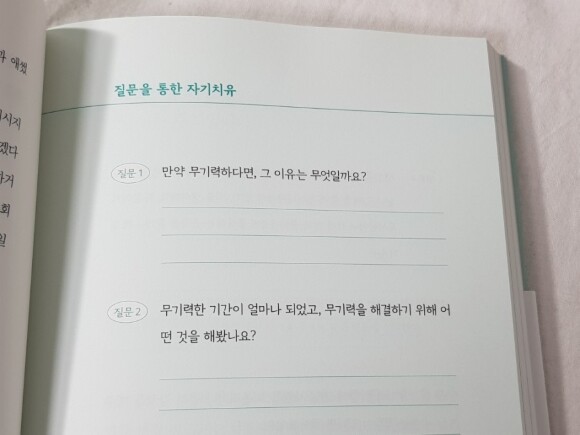 과 애썼
시지
겠다
하거
회
일
질문을 통한 자기치유
질문 1 만약 무기력하다면, 그 이유는 무엇일까요?
질문 2 무기력한 기간이 얼마나 되었고, 무기력을 해결하기 위해 어
떤 것을 해봤나요?